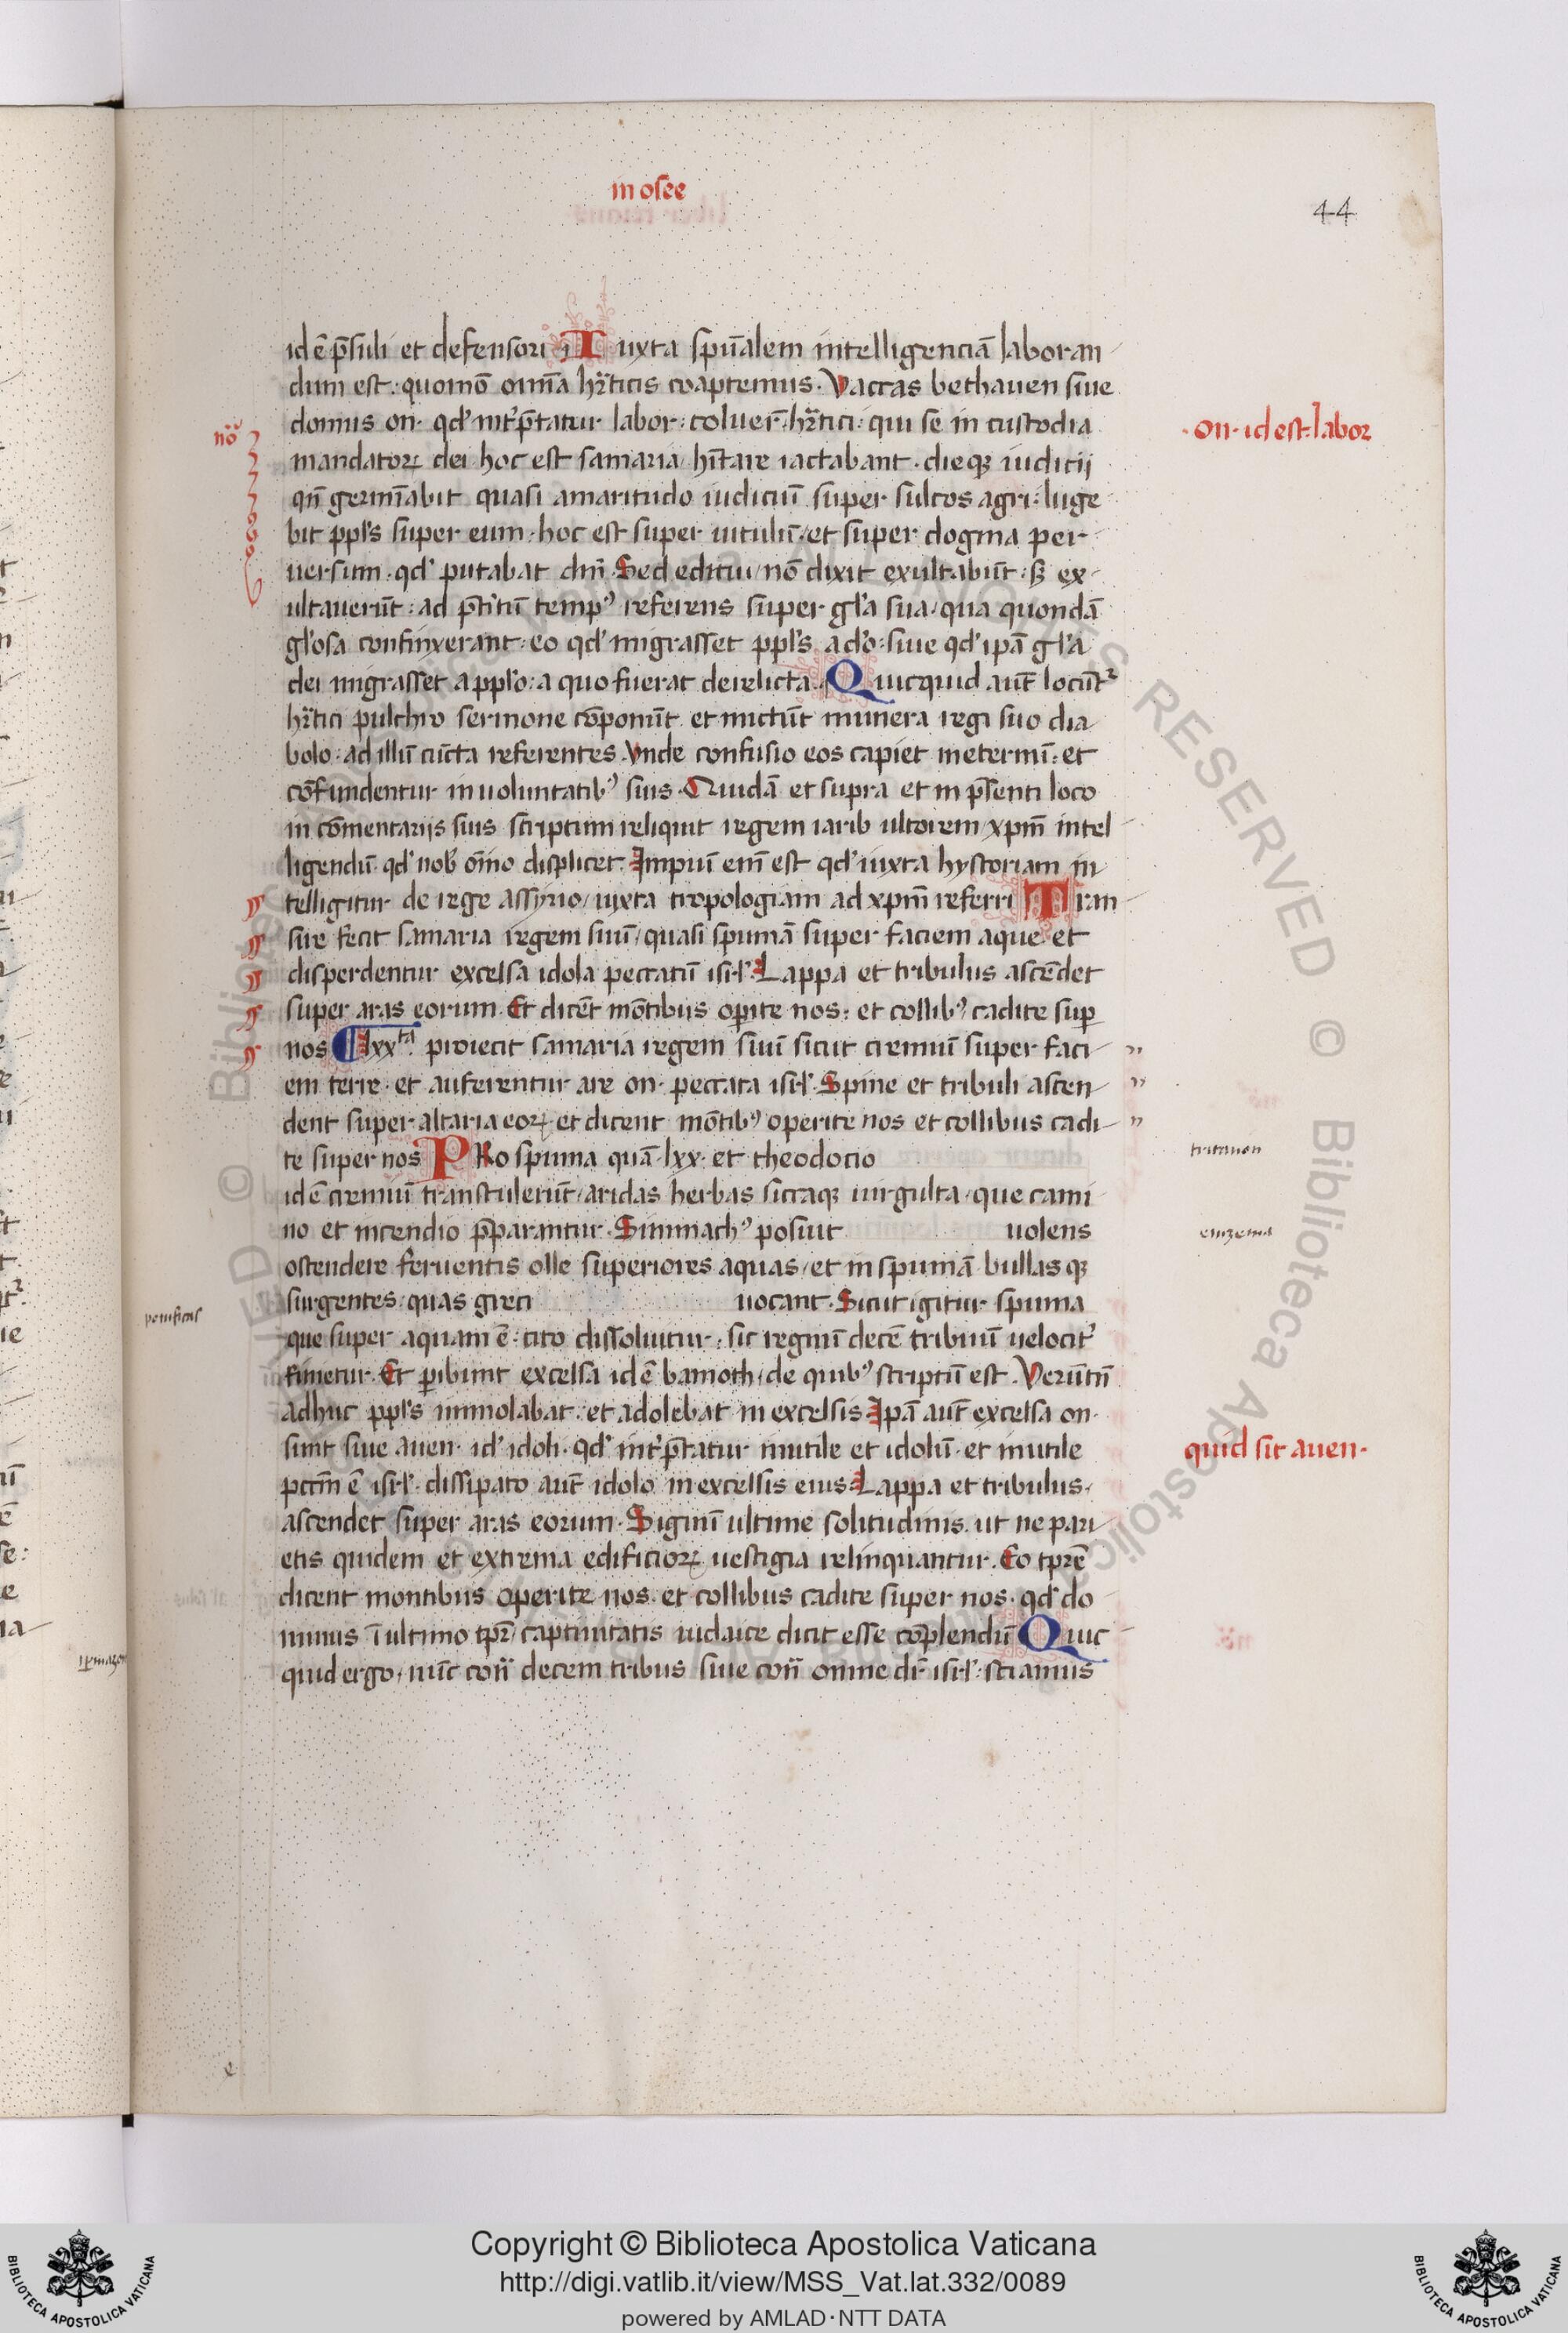 in osee
44
idē p̄suli et defensori Iuxta spūalem intelligenciā laboran
dum est: quomō omnia hr̄ticis coaptemus. Vaccas bethauen siue
domus on. qd' int'p̄tatur labor: coluer̄t hr̄tici: qui se in custodia
on. id est. labor
nō
mandatoꝝ dei hoc est samaria hītare iactabant. dieqꝫ iudicij
qn̄ germīabit quasi amaritudo iudiciū super sulcos agri: luge
bit ppl's super eum. hoc est super uitulū: et super dogma per
uersum. qd' putabat dm̄. Sed editui nō dixit exultabūt: sꝫ ex
ultauerūt: ad p̄t'itū tempꝰ referens super gl'a sua qua quondā
gl'osa confinxerant: eo qd' migrasset ppl's a d'o: siue qd' ipā gl'a
dei migrasset a ppl'o: a quo fuerat derelicta. Quicquid aūt locūt'
hr̄tici pulchro sermone cōponūt et mictūt munera regi suo dia
bolo: ad illū cūcta referentes. Vnde confusio eos capiet in eternū: et
cōfundentur in uoluntatibꝰ suis. Quidā et supra et in p̄senti loco
in cōmentarijs suis scriptum reliquit regem iarib ultorem xpm̄ intel
ligendū. qd' nob' oīno displicet. Impiū em̄ est qd' iuxta hystoriam in
telligitur de rege assyrio iuxta tropologiam ad xpm̄ referri Tran
sire fecit samaria regem suū quasi spumā super faciem aque. et
disperdentur excelsa idola peccatū isr̄l'. Lappa et tribulus ascēdet
super aras eorum. Et dicēt mōtibus opite nos: et collibꝰ cadite sup
nos lxxᵗᵃ. proiecit samaria regem suū sicut cremiū super faci
em terre. et auferentur are on. peccata isr̄l'. Spine et tribuli ascen
dent super altaria eoꝝ. et dicent mōtibꝰ operite nos et collibus cadi
te super nos PRo spuma quā lxx. et theodocio
tritanon
idē cremiū transtulerūt aridas herbas siccaqꝫ uirgulta que cami
no et incendio p̄parantur. Simmachꝰ posuit uolens
enizema
ostendere feruentis olle superiores aquas et in spumā bullasqꝫ
surgentes quas greci uocant. Sicut igitur spuma
que super aquam ē. cito dissoluitur: sic regnū decē tribuū uelocit'
finietur. Et pibunt excelsa idē bamoth de quibꝰ scriptū est. Verūtn̄
adhuc ppl's immolabat. et adolebat in excelsis. Ipā aūt excelsa on.
sunt siue auen. id' idoli. qd' int'p̄tatur inutile et idolū. et inutile
quid sit auen.
pctm̄ ē isr̄l'. dissipato aūt idolo in excelsis eius. Lappa et tribulus
ascendet super aras eorum. Signū ultime solitudinis. ut ne pari
etis quidem et extrema edificioꝝ uestigia relinquantur. Eo tpr̄e
dicent montibus operite nos. et collibus cadite super nos. qd' do
minus ī ultimo tpr̄ captiuitatis iudaice dicit esse cōplendū Quic
quid ergo nūc con̄ decem tribus siue con̄ omne dr̄ isr̄l'. sciamus
Copyright © Biblioteca Apostolica Vaticana
http://digi.vatlib.it/view/MSS_Vat.lat.332/0089
powered by AMLAD·NTT DATA
BIBLIOTECA APOSTOLICA VATICANA
BIBLIOTECA APOSTOLICA VATICANA